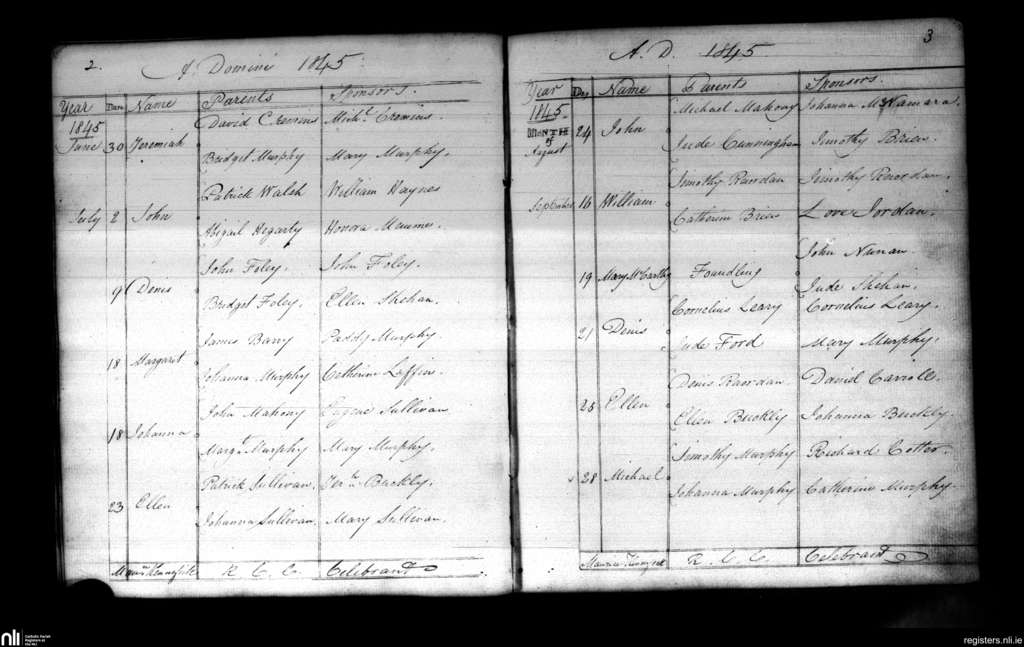 2. A. Domini 1845.
Year Date Name Parents Sponsors.
1845 David Cremins Mich.l Cremins.
June 30 Jeremiah
Bridget Murphy Mary Murphy.
Patrick Walsh William Haynes
July 2 John
Abigail Hegarty Honora
John Foley. John Foley.
9 Denis
Bridget Foley. Ellen Shehan.
James Barry Paddy Murphy
18 Margaret
Johanna Murphy Catherine Laffin.
John Mahony Eugene Sullivan
18 Johanna
Marg.t Murphy Mary Murphy.
Patrick Sullivan. Jer.h Buckley.
23 Ellen
Johanna Sullivan. Mary Sullivan.
R. C. C. Celebrant
3
A. D. 1845
Year Day Name Parents Sponsors.
1845. Michael Mahony Johanna McNamara.
Month of August 24 John
Jude Cunningham Timothy Brien.
Timothy Riordan Timothy Riordan.
September 16 William
Catherine Brien Love Jordan.
John Nunan
19 Mary McCarthy Foundling
Jude Shehan.
Cornelius Leary Cornelius Leary.
21 Denis
Jude Ford Mary Murphy.
Denis Riordan David Carroll.
25 Ellen
Ellen Buckley Johanna Buckley.
Timothy Murphy Richard Cotter.
28 Michael
Johanna Murphy Catherine Murphy
Maurice R. C. C. Celebrant
nli Catholic Parish Registers at the NLI
registers.nli.ie